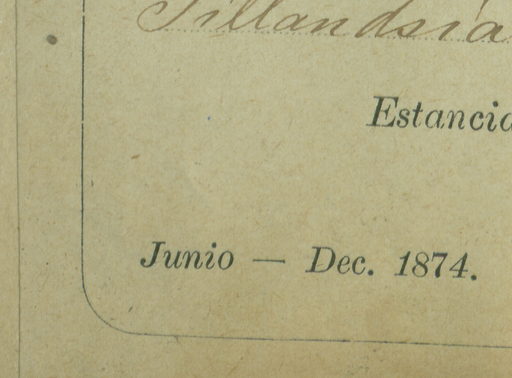 Tillandsia
Estancia
Junio — Dec. 1874.